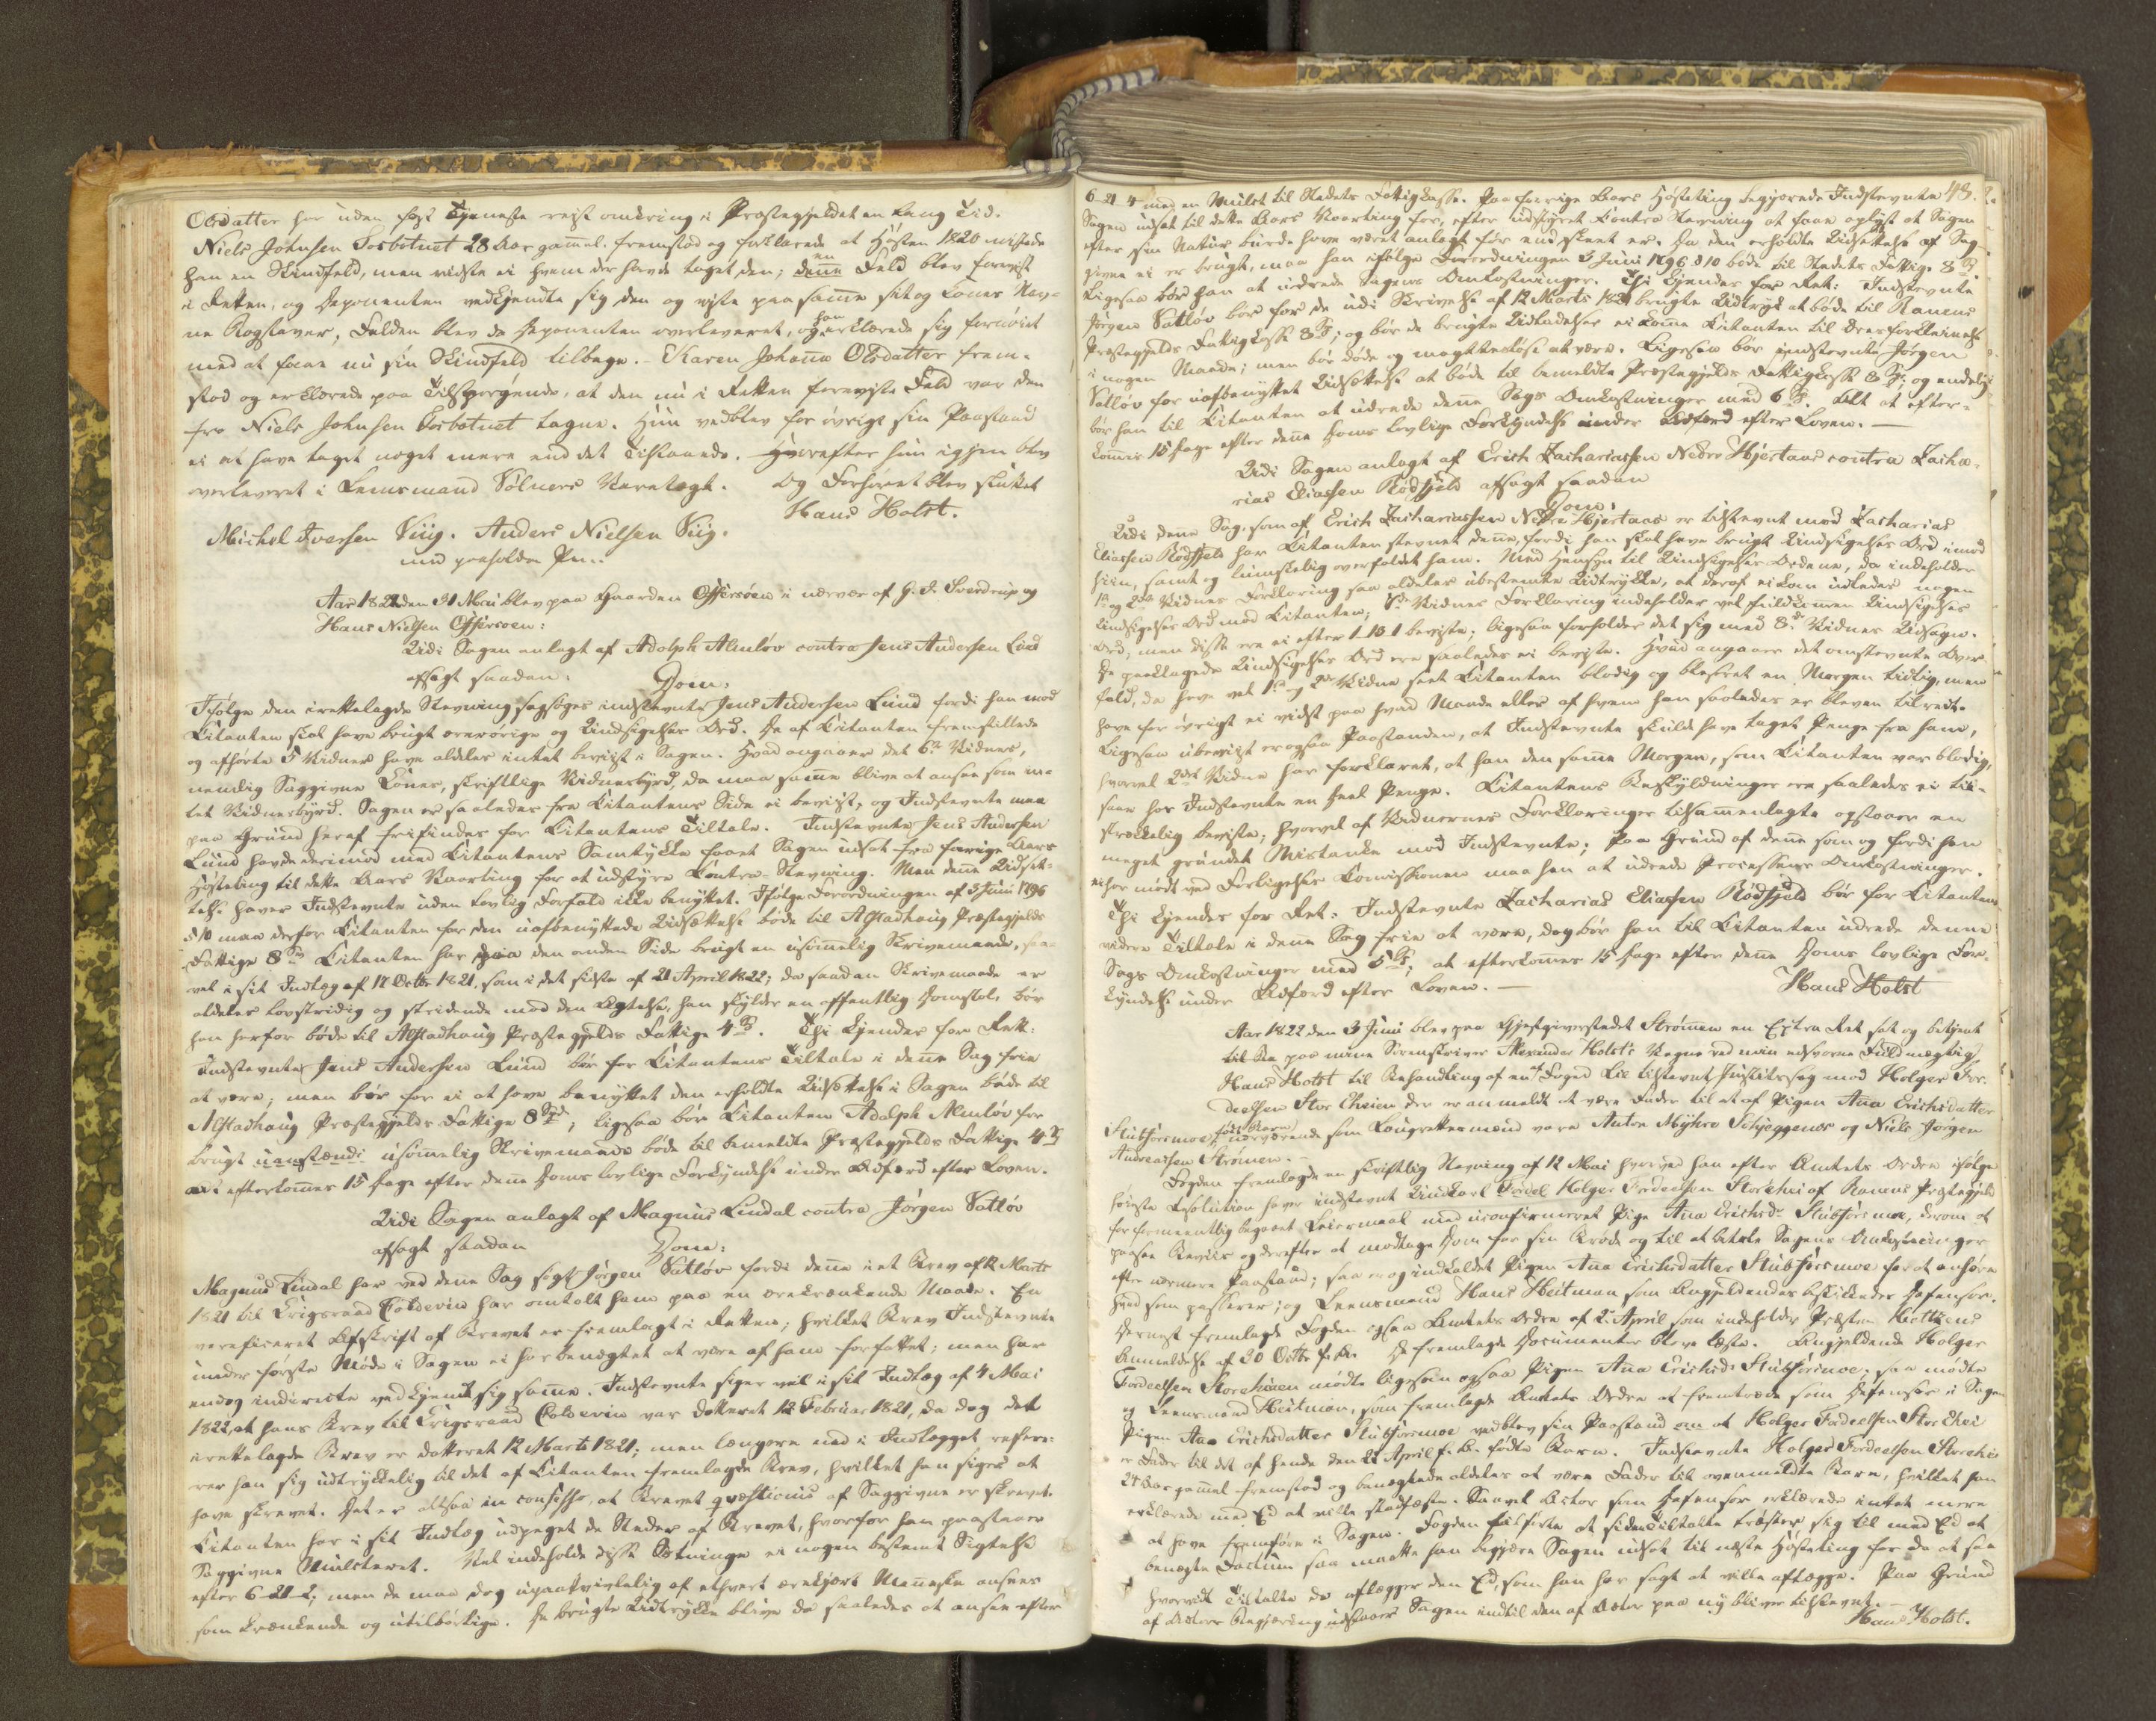 Olsdatter har uden fast Tjeneste rejst omkring i Præstegjeldet en lang Tid.
Niels Johnsen Forbotnet 28 Aar gammel. fremstod og forklarede at Høsten 1820 mistede
han en Skindfeld, men vidste ei hvem der havde taget den; denne Feld blev foreviist
i Retten, og Deponenten vedkjendte sig den og viste paa samme sit og Kones Nav-
ne Bogstaver, Felden blev da Deponenten overleveret, og han erklærede sig fornøiet
med at faae nu sin Skindfeld tilbage. - Karen Johanna Olsdatter frem-
stod og erklærede paa Tilspørgende, at den nu i Retten foreviste Feld var den
fra Niels Johnsen Forbotnet tagne. Hun vedblev for øvrigt sin Paastand
ei at have taget noget mere end det Tilstaaede. Hvorefter hun igjen blev
overleveret i Lensmand Sølners Varetægt. Og Forhøret blev sluttet
Hans Holst.
Michel Iversen Viig. Anders Nielsen Viig.
med paaholden Pen.
Aar 1822 den 31 Mai blev paa Gaarden Offersøen i nærvær af G. S. Sverdrup og
Hans Nielsen Offersoen:
Udi Sagen anlagt af Adolph Almløv contra Jens Andersen Lund
afsagt saadan: Dom:
Ifølge den irettelagde Stevning sagsøges indstevnte Jens Andersen Lund fordi han mod
Citanten skal have brugt ærerørige og Undsigelses Ord. De af Citanten fremstillede
og afhørte 5 Vidner have aldeles intet beviist i Sagen. Hvad angaaer det 6te Vidnes,
nemlig Saggivne Kones, skriftlige Vidnesbyrd, da maa samme blive at ansee som in-
tet Vidnesbyrd. Sagen er saaledes fra Citantens Side ei beviist, og Indstevnte maa
paa Grund heraf frifindes for Citantens Tiltale. Indstevnte Jens Andersen
Lund havde derimod med Citantens Samtykke faaet Sagen udsat fra forrige Aars
Høsteting til dette Aars Vaarting for at udstyre Contra-Stevning. Men denne Udsæt-
telse haver Indstevnte uden lovlig Forfald ikke benyttet. Ifølge Forordningen af 3 Juni 1796
§ 10 maa derfor Citanten for den uafbenyttede Udsættelse bøde til Alstadhaug Præstegjelds
Fattige 8 Sp. Citanten har paa den anden Side brugt en usømmelig Skrivemaade, saa-
vel i sit Indlæg af 17 Octbr 1821, som i det sidste af 21 April 1822; da saadan Skrivemaade er
aldeles lovstridig og stridende mod den Agtelse, han skylder en offentlig Domstol, bør
han herfor bøde til Alstadhaug Præstegjelds Fattige 4 Sp. Thi kjendes for Rett:
Indstevnte Jens Andersen Lund bør for Citantens Tiltale i denne Sag frie
at være; men bør for ei at have benyttet den erholdte Udsættelse i Sagen bøde til
Alstadhaug Præstegjelds Fattige 8 Spd; ligesaa bør Citanten Adolph Almløv for
brugt uanstændi usømelig Skrivemaade bøde til bemeldte Præstegjelds Fattige 4 Sp
at efterkommes 15 Dage efter denne Doms lovlige Forkyndelse under Adfærd efter Loven.
Udi Sagen anlagt af Magnus Lindal contra Jørgen Satløv
afsagt saadan Dom:
Magnus Lindal har ved denne Sag søgt Jørgen Satløv fordi denne i et Brev af 12 Marts
1821 til Krigsraad Coldevin har omtalt ham paa en ærekrænkende Maade. En
verificeret Afskrift af Brevet er fremlagt i Retten; hvilket Brev Indstevnte
under første Møde i Sagen ei har benægtet at være af ham forfattet; men har
endog indirecte vedkjendt sig samme. Indstevnte siger vel i sit Indlæg af 4 Mai
1822, at hans Brev til Krigsraad Coldevin var datteret 12 Februar 1821, da dog det
irettelagde Brev er datteret 12 Marts 1821; men længere ned i Indlægget refere-
rer han sig udtrykkelig til det af Citanten fremlagde Brev, hvilket han siger at
have skrevet. Det er altsaa in confesso, at Brevet qvæstionis af Saggivne er skrevet.
Citanten har i sit Indlæg udpeget de Steder af Brevet, hvorfor han paastaaer
Saggivne Mulcteret. Vel indeholde disse Sætninger ei nogen bestemt Sigtelse
efter 6-21-2; men de maa dog upaatvivlelig af ethvert ærekjært Menneske ansees
som krænkende og utilbørlige. De brugte Udtrykke blive da saaledes at ansee efter
43.
6-21-4 med en Mulct til Stedets Fattigkasse. Paa forrige Aars Høsteting begjerede Indstevnte
Sagen udsat til dette Aars Vaarting for, efter udstyret Contra Stevning at faae oplyst at Sagen
efter sin Natur burde have været anlagt før end skeet er. Da den erholdte Udsættelse af Sag-
givne ei er brugt, maa han ifølge Forordningen 3 Juni 1796 § 10 bøde til Stedets Fattige 8 Sp.
Ligesaa bør han at udrede Sagens Omkostninger. Thi kjendes for Ret: Indstevnte
Jørgen Satløv bør for de udi Skrivelse af 12 Marts 1821 brugte Udtryk at bøde til Ranens
Præstegjelds Fattigkasse 8 Sp; og bør de brugte Udladelser ei komme Citanten til Æresforkleinelse
i nogen Maade; men bør døde og magtesløse at være. Ligesaa bør indstevnte Jørgen
Satløv for uafbenyttet Udsættelse at bøde til bemeldte Præstegjelds Fattigkasse 8 Sp; og endelig
bør han til Citanten at udrede denne Sags Omkostninger med 6 Sp. Alt at efter-
kommes 15 Dage efter denne Doms lovlige Forkyndelse under Adfærd efter Loven. —
Udi Sagen anlagt af Erich Zachariassen Nedre Hjertaas contra Zacha-
rias Eliassen Rødfjeld afsagt saadan
Dom:
Udi denne Sag, som af Erich Zachariassen Nedre Hjertaas er tilstevnt mod Zacharias
Eliassen Rødfjeld har Citanten stevnet denne, fordi han skal have brugt Undsigelses Ord imod
hiin, samt og lumskelig overfaldet ham. Med Hensyn til Undsigelses Ordene, da indeholder
1te og 2det Vidnes Forklaring saa aldeles ubestemte Udtrykke, at deraf ei kan udledes nogen
Undsigelses Ord mod Citanten; Vidnes Forklaring indeholder vel fuldkommen Undsigelses
Ord; men disse ere ei efter 1-13-1 beviste; ligesaa forholder det sig med 8de Vidnes Udsagn.
De paaklagede Undsigelses Ord ere saaledes ei beviste. Hvad angaaer det omstevnte Over-
fald, da have vel 1te og 2det Vidne seet Citanten blodig og blesseret en Morgen tidlig, men
have for øvrigt ei vidst paa hvad Maade eller af hvem han saaledes er bleven tilredt.
Ligesaa ubeviist er ogsaa Paastanden, at Indstevnte skulde have taget Penge fra ham,
hvorvel 2det Vidne har forklaret, at han den samme Morgen, som Citanten var blodig,
saae hos Indstevnte en Deel Penge. Citantens Beskyldninger ere saaledes ei til-
strækkelig beviste; hvorvel af Vidnernes Forklaringer tilsammenlagte opstaaer en
meget grundet Mistanke mod Indstevnte; Paa Grund af denne som og fordi han
ei har mødt ved Forligelses Comissionen maa han at udrede Processens Omkostninger.
Thi kjendes for Ret: Indstevnte Zacharias Eliassen Rødfjeld bør for Citantens
videre Tiltale i denne Sag frie at være, dog bør han til Citanten udrede denne
Sags Omkostninger med 5 Sp; at efterkommes 15 Dage efter denne Doms lovlige For-
kyndelse under Adfærd efter Loven. —
Hans Holst
Aar 1822 den 3 Juni blev paa Gjestgiverstedet Strømmen en Extra Ret sat og betjent
paa mine Sorenskriver Alexander Holst's Vegne ved min edsvorne Fuldmægtig
Hans Holst til Behandling af en af Foged Lie tilstevnt Justitssag mod Holger For-
deelsen Stor Eheien der er anmeldt at være Fader til et af Pigen Ana Erichsdatter
Stubforsmoe født Barn nærværende som Laugrettesmænd vare Anton Myhre Selsjeggenes og Niels Jørgen
Andreassen Strømen. —
Fogden fremlagde en skriftlig Stevning af 12 Mai hvorved han efter Amtets Ordre ifølge
høieste Resolution haver indstevnt Ungkarl Holger Fordeelsen Storehei af Ranens Præstegjeld
for formeentlig begaaet Leiermaal med uconfirmeret Pige Ana Erichsdr Stubforsmoe, derom at
paasee Beviis og derefter at modtage Dom for sin Brøde og til at betale Sagens Omkostninger
efter nærmere Paastand; saa er og indkaldet Pigen Ana Erichsdatter Stubforsmoe for at anhøre
hvad som passerer; og Leensmand Hans Heitman som Angjeldendes beskikkede Defensor.
Dernest fremlagde Fogden ogsaa Amtets Ordre af 2 April som indeholder Præsten
Anmeldelse af 30 Octbr f. A. De fremlagde Documenter bleve læste. Angjeldende Holger
Fordeelsen Storeheien mødte ligesom ogsaa Pigen Ana Erichsdr Stubforsmoe; saa mødte
og Leensmand Heitman, som fremlagde Amtets Ordre at fremtræde som Defensor i Sagen
Pigen Ana Erichsdatter Stubforsmoe vedblev sin Paastand om at Holger Fordeelsen Storehei
er Fader til det af hende den 21 April f. A. fødte Barn. Indstevnte Holger Fordeelsen Storehei
24 Aar gammel fremstod og benægtede aldeles at være Fader til ovenmeldte Barn, hvilket han
erklærede med Ed at ville stadfæste. Saavel Actor som Defensor erklærede intet mere
at have fremføre i Sagen. Fogden tilførte at siden Tiltalte trøster sig til med Ed at
benægte Factum saa maatte han begjere Sagen udsat til næste Høsteting for da at see
hvorvidt Tiltalte da aflægger den Ed, som han har sagt at ville aflægge. Paa Grund
af Actors Begjæring udstaaer Sagen indtil den af Actor paa ny bliver tilstevnt. —
Hans Holst.